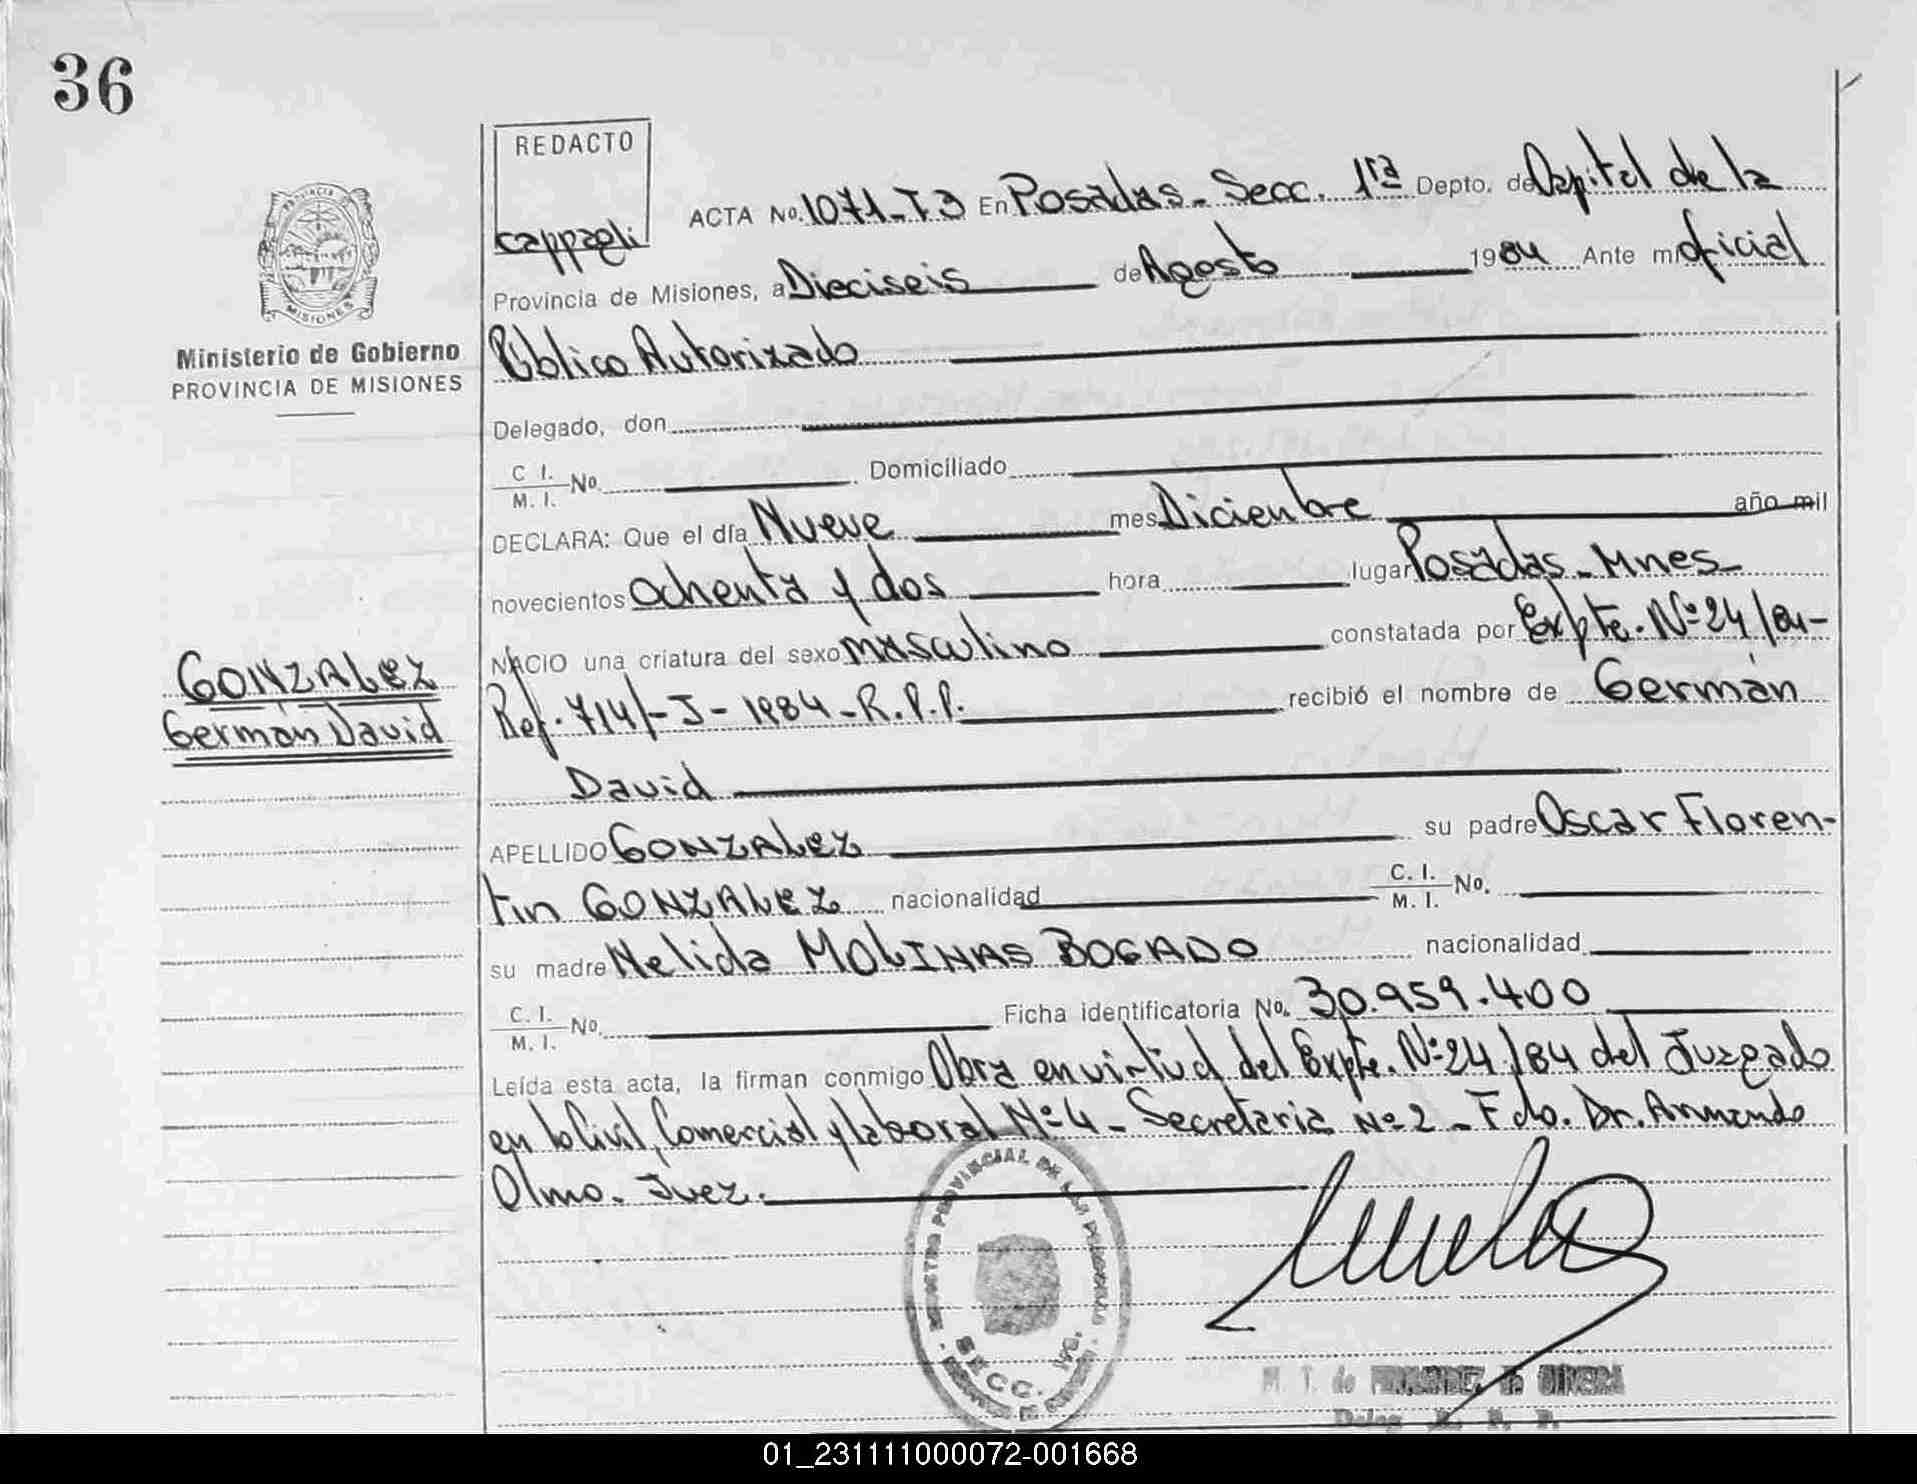 36
REDACTO
cappagli
ACTA No. 1071-T3 En Posadas - Secc. 1ra Depto. de Capital de la
Provincia de Misiones, a Dieciseis de Agosto 1984 Ante mi oficial
Público Autorizado
Delegado, don
C I. M. I. No. Domiciliado
DECLARA: Que el día Nueve mes Diciembre año mil
novecientos ochenta y dos hora lugar Posadas - Mnes
NACIO una criatura del sexo masculino constatada por Expte. Nº 24/84-
Ref. 714/-J-1984-R.P.P. recibió el nombre de Germán
David
APELLIDO GONZALEZ su padre Oscar Floren-
tin GONZALEZ nacionalidad C. I. M. I. No.
su madre Nelida MOLINAS BOGADO nacionalidad
C. I. M. I. No. Ficha identificatoria No. 30.959.400
Leída esta acta, la firman conmigo Obra en virtud del Expte. Nº 24/84 del Juzgado
en lo Civil, Comercial y laboral Nº 4 - Secretaria Nº 2 - Fdo. Dr. Armando
Olmo. Juez.
PROVINCIA
MISIONES
Ministerio de Gobierno
PROVINCIA DE MISIONES
GONZALEZ
Germán David
REGISTRO PROVINCIAL DE LAS PERSONAS
SECC. 1ra.
M. T. de FERNANDEZ de
Deleg R. P. P.
01_231111000072-001668